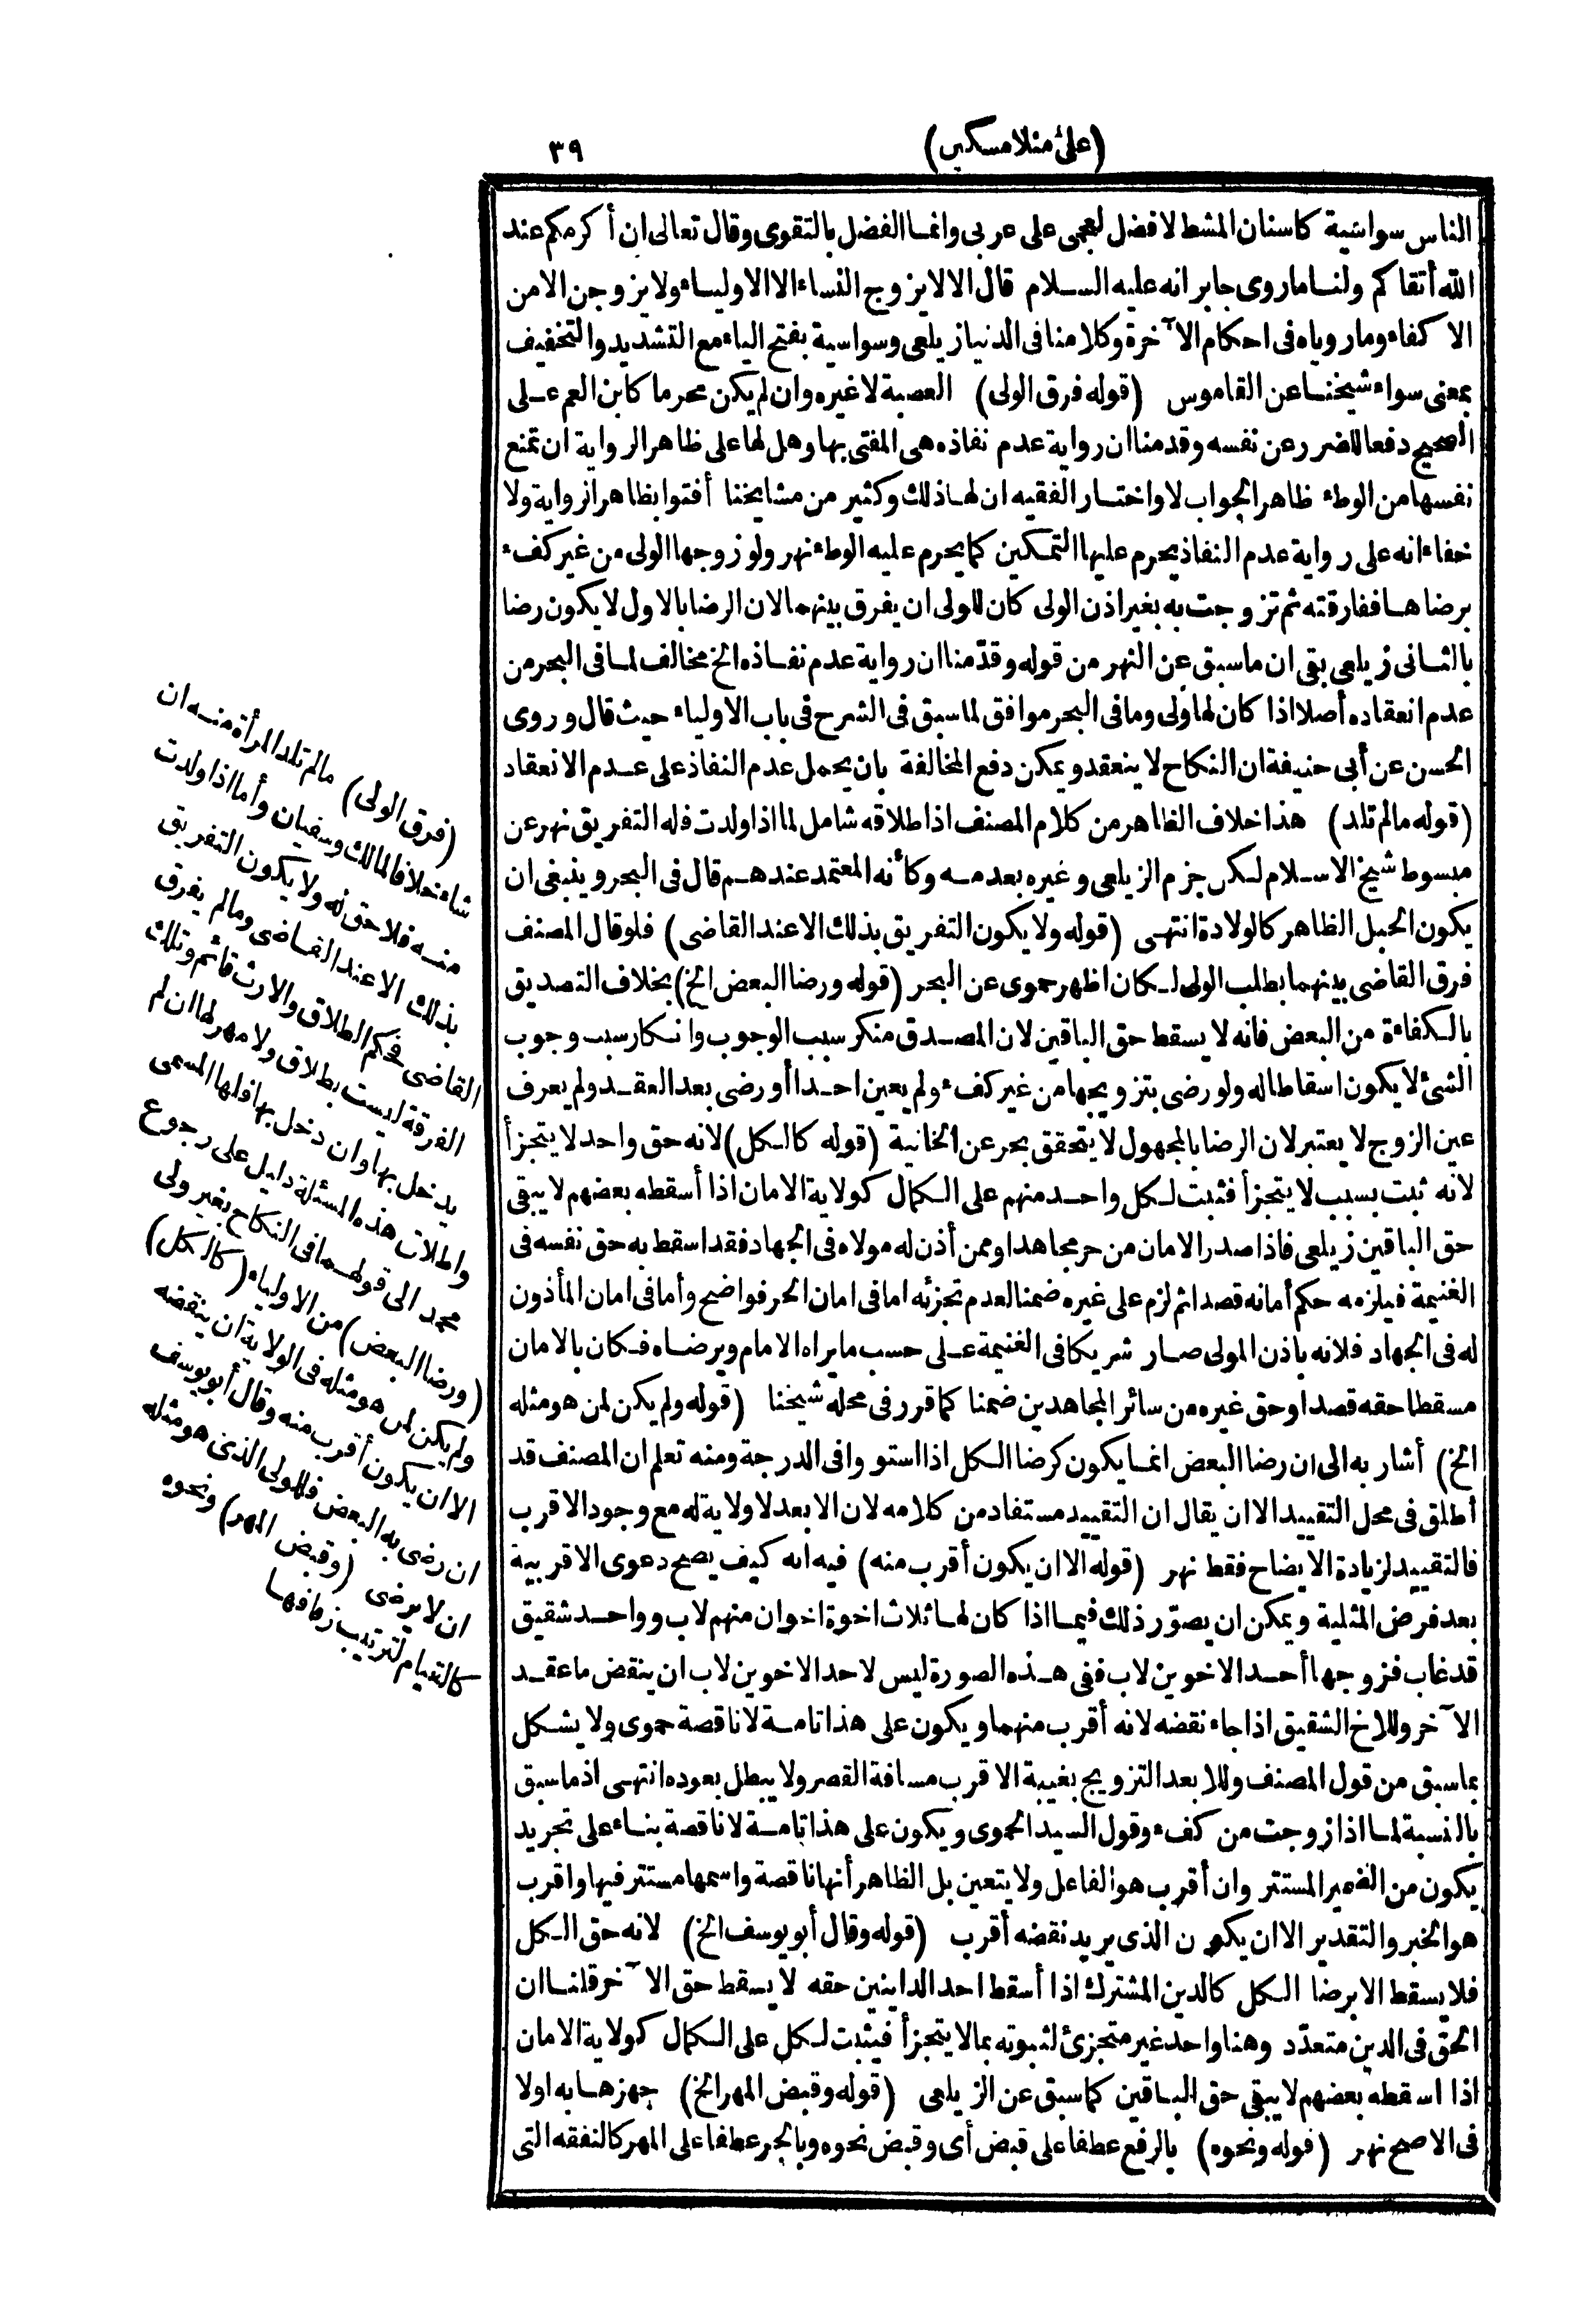 (على منلا مسكين) ٣٩
الناس سواسية كاسنان المشط لا فضل لعجمى على عربى وانما الفضل بالتقوى وقال تعالى ان أكرمكم عند
الله أتقاكم ولنا ما روى جابر انه عليه السلام قال الا لا يزوج النساء الا الاولياء ولا يزوجن الا من
الاكفاء وما رواياه فى احكام الآخرة وكلامنا فى الدنيا زيلعى وسواسية بفتح الياء مع التشديد والتخفيف
بمعنى سواء شيخنا عن القاموس (قوله فرق الولى) العصبة لا غيره وان لم يكن محرما كابن العم على
الصحيح دفعا للضرر عن نفسه وقدمنا ان رواية عدم نفاذه هى المفتى بها وهل لها على ظاهر الرواية ان تمنع
نفسها من الوطء ظاهر الجواب لا واختار الفقيه ان لها ذلك وكثير من مشايخنا أفتوا بظاهر الرواية ولا
خفاء انه على رواية عدم النفاذ يحرم عليها التمكين كما يحرم عليه الوطء نهر ولو زوجها الولى من غير كفء
برضاها ففارقته ثم تزوجت به بغير اذن الولى كان للولى ان يفرق بينهما لان الرضا بالاول لا يكون رضا
بالثانى زيلعى بقى ان ما سبق عن النهر من قوله وقدّمنا ان رواية عدم نفاذه الخ مخالف لما فى البحر من
عدم انعقاده أصلا اذا كان لها ولى وما فى البحر موافق لما سبق فى الشرح فى باب الاولياء حيث قال وروى
الحسن عن أبى حنيفة ان النكاح لا ينعقد ويمكن دفع المخالفة بان يحمل عدم النفاذ على عدم الانعقاد
(قوله ما لم تلد) هذا خلاف الظاهر من كلام المصنف اذ اطلاقه شامل لما اذا ولدت فله التفريق نهر عن
مبسوط شيخ الاسلام لكن جزم الزيلعى وغيره بعدمه وكأنه المعتمد عندهم قال فى البحر وينبغى ان
يكون الحبل الظاهر كالولادة انتهى (قوله ولا يكون التفريق بذلك الا عند القاضى) فلو قال المصنف
فرق القاضى بينهما بطلب الولى لكان اظهر حموى عن البحر (قوله ورضا البعض الخ) بخلاف التصديق
بالكفاءة من البعض فانه لا يسقط حق الباقين لان المصدق منكر سبب الوجوب وانكار سبب وجوب
الشئ لا يكون اسقاطا له ولو رضى بتزويجها من غير كفء ولم يعين احدا أو رضى بعد العقد ولم يعرف
عين الزوج لا يعتبر لان الرضا بالمجهول لا يتحقق بحر عن الخانية (قوله كالكل) لانه حق واحد لا يتجزأ
لانه ثبت بسبب لا يتجزأ فثبت لكل واحد منهم على الكمال كولاية الامان اذا أسقطه بعضهم لا يبقى
حق الباقين زيلعى فاذا صدر الامان من حر مجاهد او ممن أذن له مولاه فى الجهاد فقد اسقط به حق نفسه فى
الغنيمة فيلزمه حكم أمانه قصدا ثم لزم على غيره ضمنا لعدم تجزئه اما فى امان الحر فواضح وأما فى امان المأذون
له فى الجهاد فلانه باذن المولى صار شريكا فى الغنيمة على حسب ما يراه الامام ويرضاه فكان بالامان
مسقطا حقه قصدا وحق غيره من سائر المجاهدين ضمنا كما قرر فى محله شيخنا (قوله ولم يكن لمن هو مثله
الخ) أشار به الى ان رضا البعض انما يكون كرضا الكل اذا استووا فى الدرجة ومنه تعلم ان المصنف قد
أطلق فى محل التقييد الا ان يقال ان التقييد مستفاد من كلامه لان الابعد لا ولاية له مع وجود الاقرب
فالتقييد لزيادة الايضاح فقط نهر (قوله الا ان يكون أقرب منه) فيه انه كيف يصح دعوى الاقربية
بعد فرض المثلية ويمكن ان يصوّر ذلك فيما اذا كان لها ثلاث اخوة اخوان منهم لاب وواحد شقيق
قد غاب فزوجها أحد الاخوين لاب ففى هذه الصورة ليس لاحد الاخوين لاب ان ينقض ما عقد
الآخر وللاخ الشقيق اذا جاء نقضه لانه أقرب منهما ويكون على هذا تامة لا ناقصة حموى ولا يشكل
بما سبق من قول المصنف وللابعد التزويج بغيبة الاقرب مسافة القصر ولا يبطل بعوده انتهى اذ ما سبق
بالنسبة لما اذا زوجت من كفء وقول السيد الحموى ويكون على هذا تامة لا ناقصة بناء على تجريد
يكون من الضمير المستتر وان أقرب هو الفاعل ولا يتعين بل الظاهر أنها ناقصة واسمها مستتر فيها واقرب
هو الخبر والتقدير الا ان يكون الذى يريد نقضه أقرب (قوله وقال أبو يوسف الخ) لانه حق الكل
فلا يسقط الا برضا الكل كالدين المشترك اذا أسقط احد الداينين حقه لا يسقط حق الآخر قلنا ان
الحق فى الدين متعدّد وهنا واحد غير متجزئ لثبوته بما لا يتجزأ فيثبت لكل على الكمال كولاية الامان
اذا اسقطه بعضهم لا يبقى حق الباقين كما سبق عن الزيلعى (قوله وقبض المهر الخ) جهزها به اولا
فى الاصح نهر (قوله ونحوه) بالرفع عطفا على قبض أى وقبض نحوه وبالجر عطفا على المهر كالنفقه التى
(فرق الولى) ما لم تلد المرأة منه ان
شاء خلافا لمالك وسفيان وأما اذا ولدت
منه فلا حق له ولا يكون التفريق
بذلك الا عند القاضى وما لم يفرق
القاضى فحكم الطلاق والارث قائم وتلك
الفرقة ليست بطلاق ولا مهر لها ان لم
يدخل بها وان دخل بها فلها المسمى
واطلاق هذه المسئلة دليل على رجوع
محمد الى قولهما فى النكاح بغير ولى
(ورضا البعض) من الاولياء (كالكل)
ولم يكن لمن هو مثله فى الولاية ان ينقضه
الا ان يكون أقرب منه وقال أبو يوسف
ان رضى به البعض فللولى الذى هو مثله
ان لا يرضى (وقبض المهر) ونحوه
كالقيام لترتيب زفافها